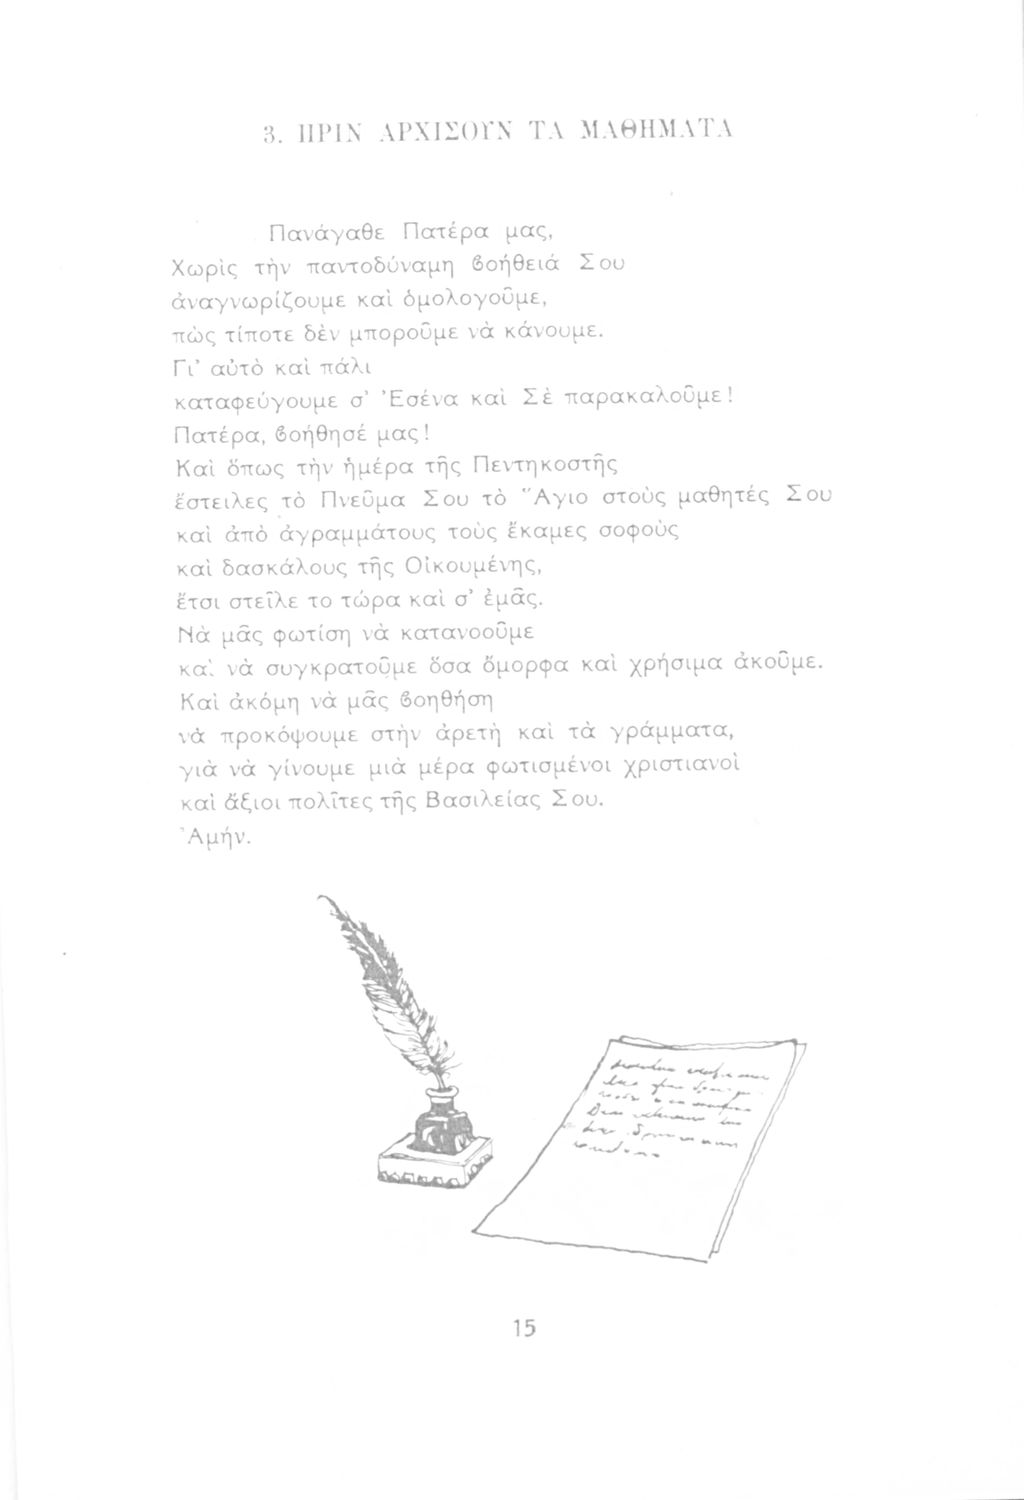 3. ΠΡΙΝ ΑΡΧΙΣΟΥΝ ΤΑ ΜΑΘΗΜΑΤΑ
Πανάγαθε Πατέρα μας,
Χωρὶς τὴν παντοδύναμη βοήθειά Σου
ἀναγνωρίζουμε καὶ ὁμολογοῦμε,
πὼς τίποτε δὲν μποροῦμε νὰ κάνουμε.
Γι’ αὐτὸ καὶ πάλι
καταφεύγουμε σ’ Ἐσένα καὶ Σὲ παρακαλοῦμε!
Πατέρα, βοήθησέ μας!
Καὶ ὅπως τὴν ἡμέρα τῆς Πεντηκοστῆς
ἔστειλες τὸ Πνεῦμα Σου τὸ Ἅγιο στοὺς μαθητές Σου
καὶ ἀπὸ ἀγραμμάτους τοὺς ἔκαμες σοφοὺς
καὶ δασκάλους τῆς Οἰκουμένης,
ἔτσι στεῖλε το τώρα καὶ σ’ ἐμᾶς.
Νὰ μᾶς φωτίση νὰ κατανοοῦμε
καὶ νὰ συγκρατοῦμε ὅσα ὄμορφα καὶ χρήσιμα ἀκοῦμε.
Καὶ ἀκόμη νὰ μᾶς βοηθήση
νὰ προκόψουμε στὴν ἀρετὴ καὶ τὰ γράμματα,
γιὰ νὰ γίνουμε μιὰ μέρα φωτισμένοι χριστιανοὶ
καὶ ἄξιοι πολῖτες τῆς Βασιλείας Σου.
Ἀμήν.
15